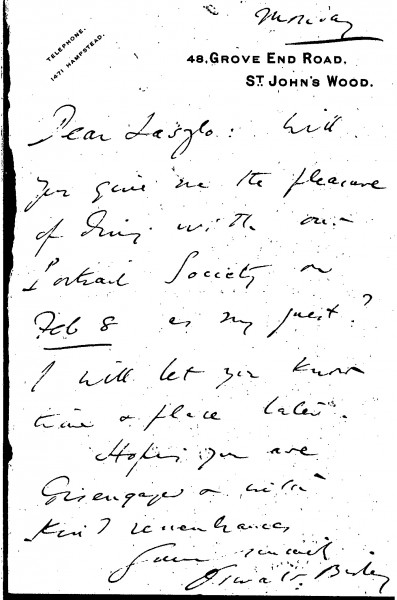 Monday
TELEPHONE.
1471 HAMPSTEAD.
48, GROVE END ROAD,
ST JOHN'S WOOD.
Dear Laszlo: Will
you give me the pleasure
of dining with our
Portrait Society on
Feb 8 as my guest?
I will let you know
time & place later.
Hoping you are
disengaged & with
kind remembrances
Yours sincerely
Oswald Birley